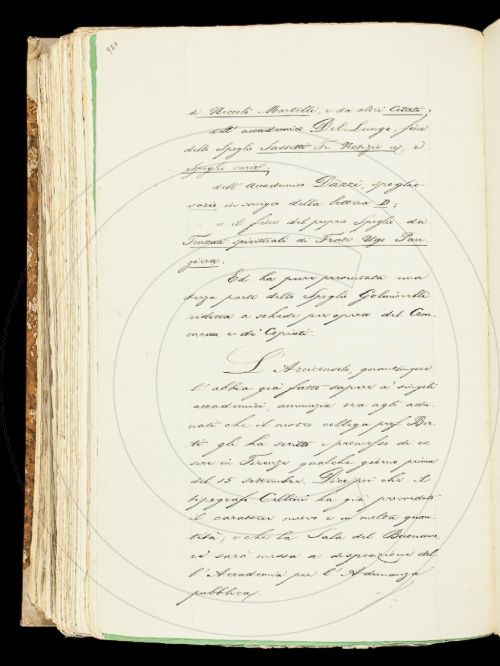 di Niccolò Martelli, e da altri Citati;
dell'accademico Del Lungo, fine
dello Spoglio Sassetti Fr. Notizie ec. e
Spoglio vario;
dell'Accademico Dazzi, spoglio
vario in servigio della lettera D;
e il fine del proprio Spoglio da
Trattati spirituali di Frate Ugo Pan-
ziera.
Ed ha pure presentata una
terza parte dello Spoglio
ridotta a schede per opera del Com-
messo e di Copisti.
L'Arciconsolo, quantunque
l'abbia già fatto sapere a' singoli
accademici, annunzia ora agli adu-
nati che il nostro collega prof. Ber-
ti gli ha scritto e promesso di es-
sere in Firenze qualche giorno prima
del 15 settembre. Dice poi che il
tipografo Cellini ha già provveduto
il carattere nuovo e in molta quan-
tità, e che la Sala del Buonumo-
re sarà messa a disposizione del-
l'Accademia per l'Adunanza
pubblica.